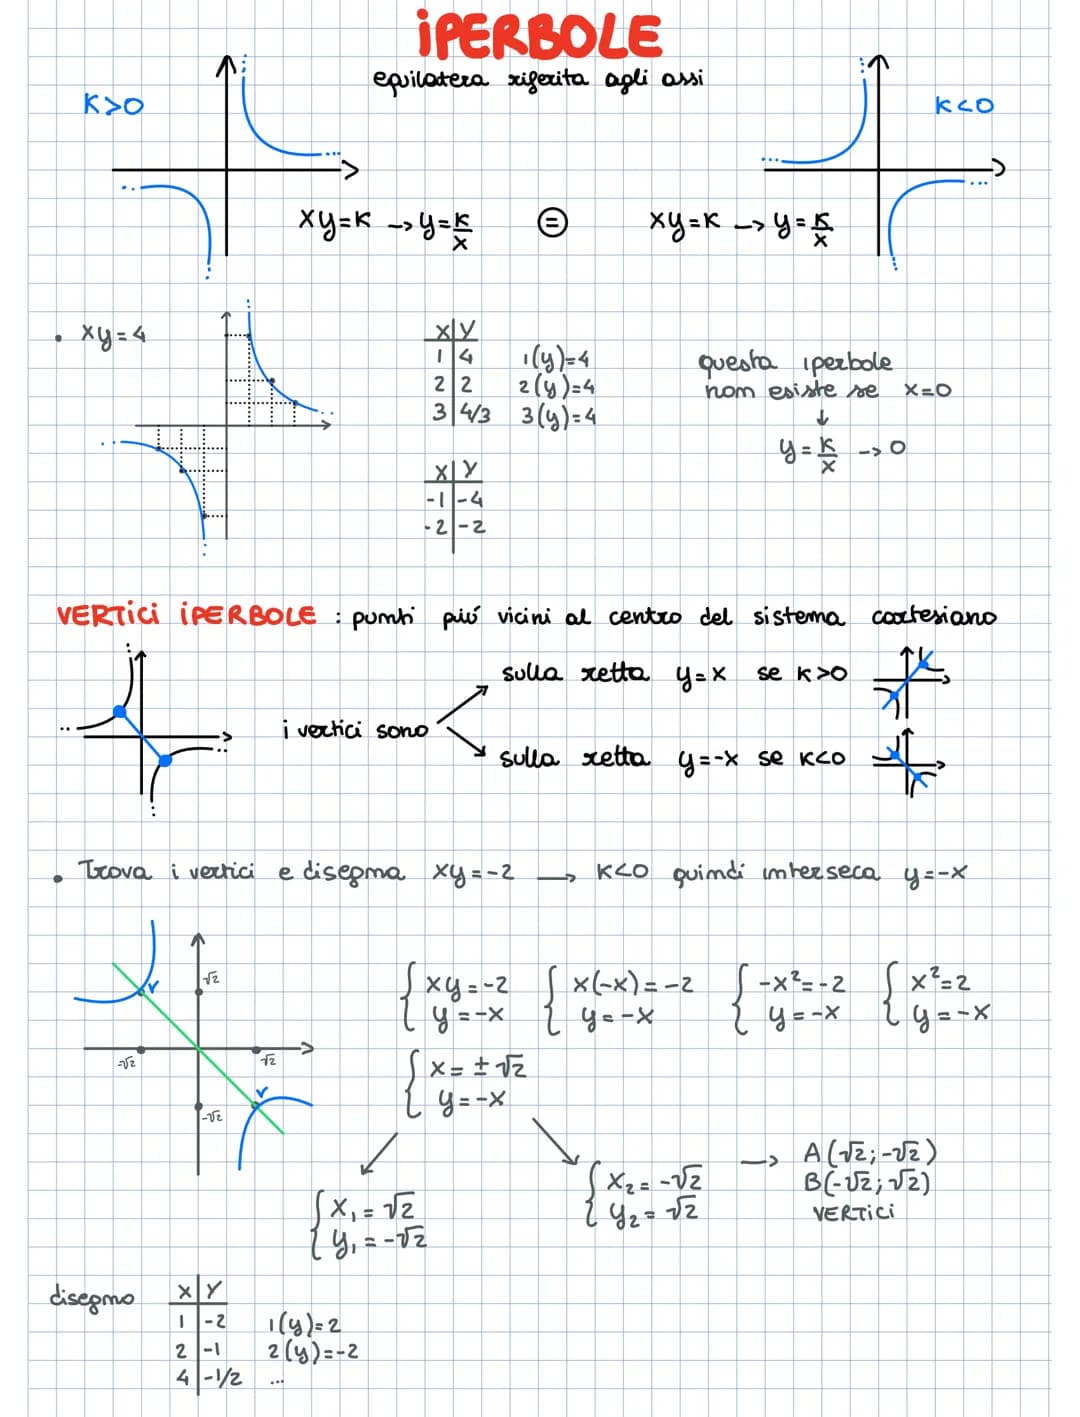 iPERBOLE
equilatera riferita agli assi
K>0
K<0
xy=K -> y=K/x
=
xy=K -> y=K/x
• xy=4
x|y
1|4 1(y)=4
2|2 2(y)=4
3|4/3 3(y)=4
questa iperbole
non esiste se x=0
↓
y=K/x -> 0
x|y
-1|-4
-2|-2
VERTiCi iPERBOLE : punti più vicini al centro del sistema cartesiano
i vertici sono
sulla retta y=x se K>0
sulla retta y=-x se K<0
• Trova i vertici e disegna xy=-2 -> K<0 quindi interseca y=-x
√2
V
-√2
√2
V
-√2
{ xy=-2 { x(-x)=-2 { -x²=-2 { x²=2
y=-x y=-x y=-x y=-x
{ x=±√2
y=-x
{ x₁=√2
y₁=-√2
{ x₂=-√2
y₂=√2
-> A(√2;-√2)
B(-√2;√2)
VERTiCi
disegno
x|y
1|-2 1(y)=2
2|-1 2(y)=-2
4|-1/2 ...